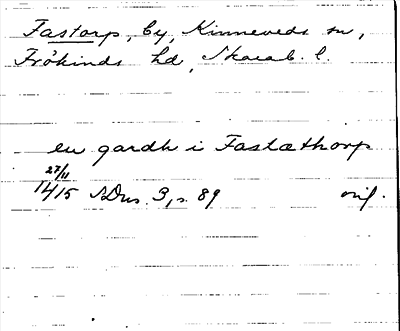 Fastorp, by, Kinneveds sn,
Frökinds hd, Skarab. l.
en gardh i Fastæthorp
27/11
1415 SDns 3, s. 89 orig.